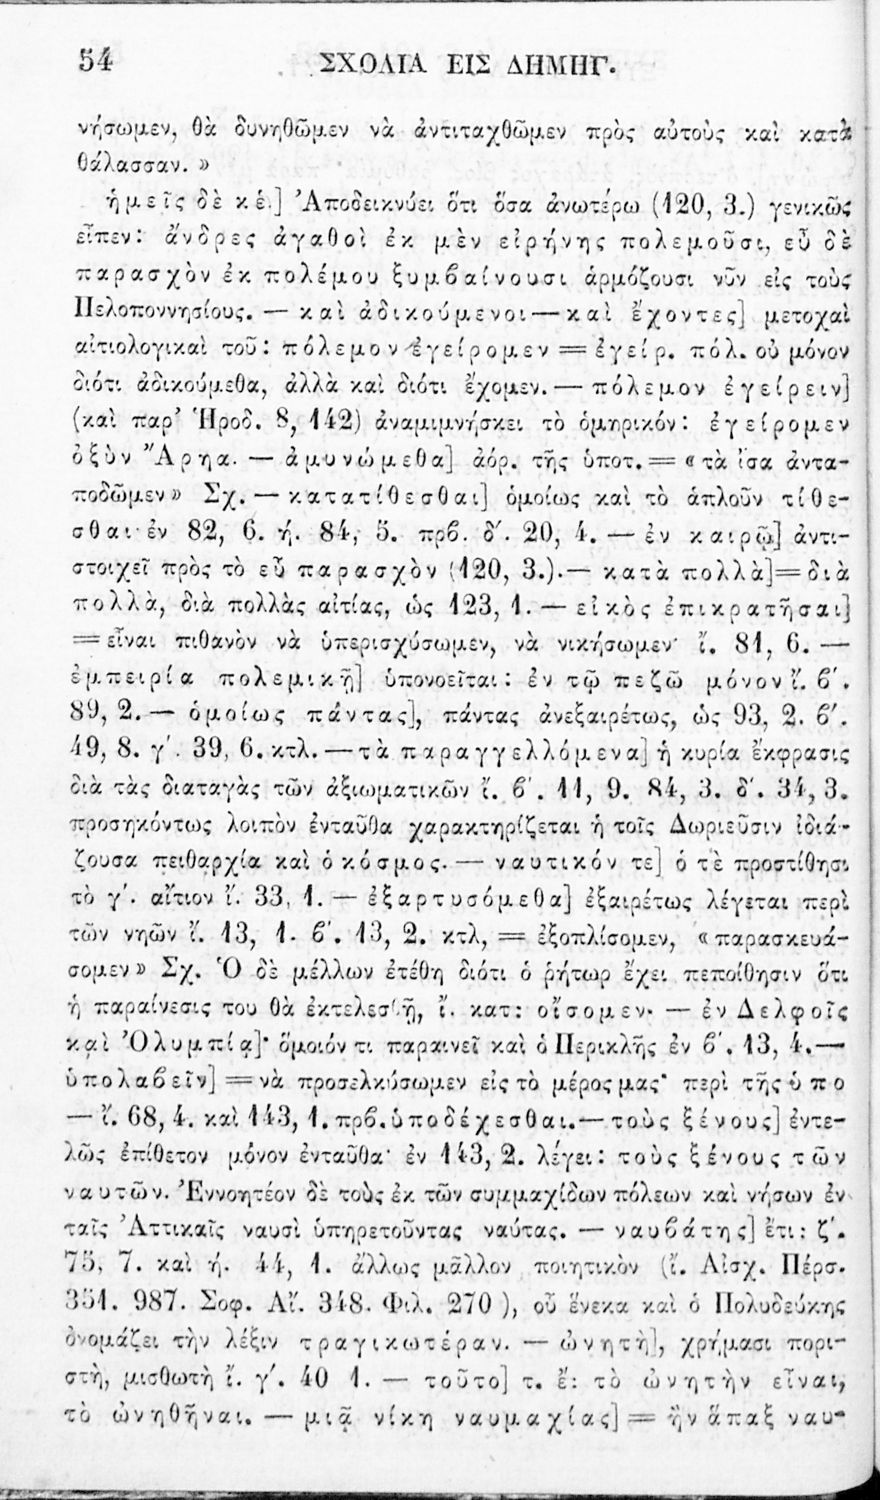 54 ΣΧΟΛΙΑ ΕΙΣ ΔΗΜΗΓ.
νήσωμεν, θὰ δυνηθῶμεν νὰ ἀντιταχθῶμεν πρὸς αὐτοὺς καὶ κατὰ
θάλασσαν. »
ἡμεῖς δὲ κἑ.] Ἀποδεικνύει ὅτι ὅσα ἀνωτέρω (120, 3.) γενικῶς
εἶπεν: ἄνδρες ἀγαθοὶ ἐκ μὲν εἰρήνης πολεμοῦσι, εὖ δὲ
παρασχὸν ἐκ πολέμου ξυμβαίνουσι ἁρμόζουσι νῦν εἰς τοὺς
Πελοποννησίους. — καὶ ἀδικούμενοι — καὶ ἔχοντες] μετοχαὶ
αἰτιολογικαὶ τοῦ: πόλεμον ἐγείρομεν = ἐγείρ. πόλ. οὐ μόνον
διότι ἀδικούμεθα, ἀλλὰ καὶ διότι ἔχομεν. — πόλεμον ἐγείρειν]
(καὶ παρ' Ἡροδ. 8, 142) ἀναμιμνήσκει τὸ ὁμηρικόν: ἐγείρομεν
ὀξὺν Ἄρηα. — ἀμυνώμεθα] ἀόρ. τῆς ὑποτ. = « τὰ ἴσα ἀντα-
ποδῶμεν » Σχ. — κατατίθεσθαι] ὁμοίως καὶ τὸ ἁπλοῦν τίθε-
σθαι ἐν 82, 6. ἡ. 84, 5. πρβ. δ'. 20, 4. — ἐν καιρῷ] ἀντι-
στοιχεῖ πρὸς τὸ εὖ παρασχὸν (120, 3.). — κατὰ πολλὰ] = διὰ
πολλὰ, διὰ πολλὰς αἰτίας, ὡς 123, 1. — εἰκὸς ἐπικρατῆσαι]
= εἶναι πιθανὸν νὰ ὑπερισχύσωμεν, νὰ νικήσωμεν· ἴ. 81, 6. —
ἐμπειρία πολεμικῇ] ὑπονοεῖται: ἐν τῷ πεζῷ μόνον ἴ. β'.
89, 2. — ὁμοίως πάντας], πάντας ἀνεξαιρέτως, ὡς 93, 2. β'.
49, 8. γ'. 39, 6. κτλ. — τὰ παραγγελλόμενα] ἡ κυρία ἔκφρασις
διὰ τὰς διαταγὰς τῶν ἀξιωματικῶν ἴ. β'. 11, 9. 84, 3. δ'. 34, 3.
προσηκόντως λοιπὸν ἐνταῦθα χαρακτηρίζεται ἡ τοῖς Δωριεῦσιν ἰδιά-
ζουσα πειθαρχία καὶ ὁ κόσμος. — ναυτικόν τε] ὁ τὲ προστίθησι
τὸ γ'. αἴτιον ἴ. 33, 1. — ἐξαρτυσόμεθα] ἐξαιρέτως λέγεται περὶ
τῶν νηῶν ἴ. 13, 1. β'. 13, 2. κτλ, = ἐξοπλίσομεν, « παρασκευά-
σομεν » Σχ. Ὁ δὲ μέλλων ἐτέθη διότι ὁ ῥήτωρ ἔχει πεποίθησιν ὅτι
ἡ παραίνεσις του θὰ ἐκτελεσθῇ, ἴ. κατ: οἴσομεν. — ἐν Δελφοῖς
καὶ Ὀλυμπίᾳ]· ὅμοιόν τι παραινεῖ καὶ ὁ Περικλῆς ἐν β'. 13, 4. —
ὑπολαβεῖν] = νὰ προσελκύσωμεν εἰς τὸ μέρος μας· περὶ τῆς ὑπο
— ἴ. 68, 4. καὶ 143, 1. πρβ. ὑποδέχεσθαι. — τοὺς ξένους] ἐντε-
λῶς ἐπίθετον μόνον ἐνταῦθα· ἐν 143, 2. λέγει: τοὺς ξένους τῶν
ναυτῶν. Ἐννοητέον δὲ τοὺς ἐκ τῶν συμμαχίδων πόλεων καὶ νήσων ἐν
ταῖς Ἀττικαῖς ναυσὶ ὑπηρετοῦντας ναύτας. — ναυβάτης] ἔτι: ζ'.
75, 7. καὶ ἡ. 44, 1. ἄλλως μᾶλλον ποιητικὸν (ἴ. Αἰσχ. Πέρσ.
351. 987. Σοφ. Αἴ. 348. Φιλ. 270 ), οὗ ἕνεκα καὶ ὁ Πολυδεύκης
ὀνομάζει τὴν λέξιν τραγικωτέραν. — ὠνητὴ], χρήμασι πορι-
στὴ, μισθωτὴ ἴ. γ'. 40 1. — τοῦτο] τ. ἔ: τὸ ὠνητὴν εἶναι,
τὸ ὠνηθῆναι. — μιᾷ νίκη ναυμαχίας] = ἢν ἅπαξ ναυ-